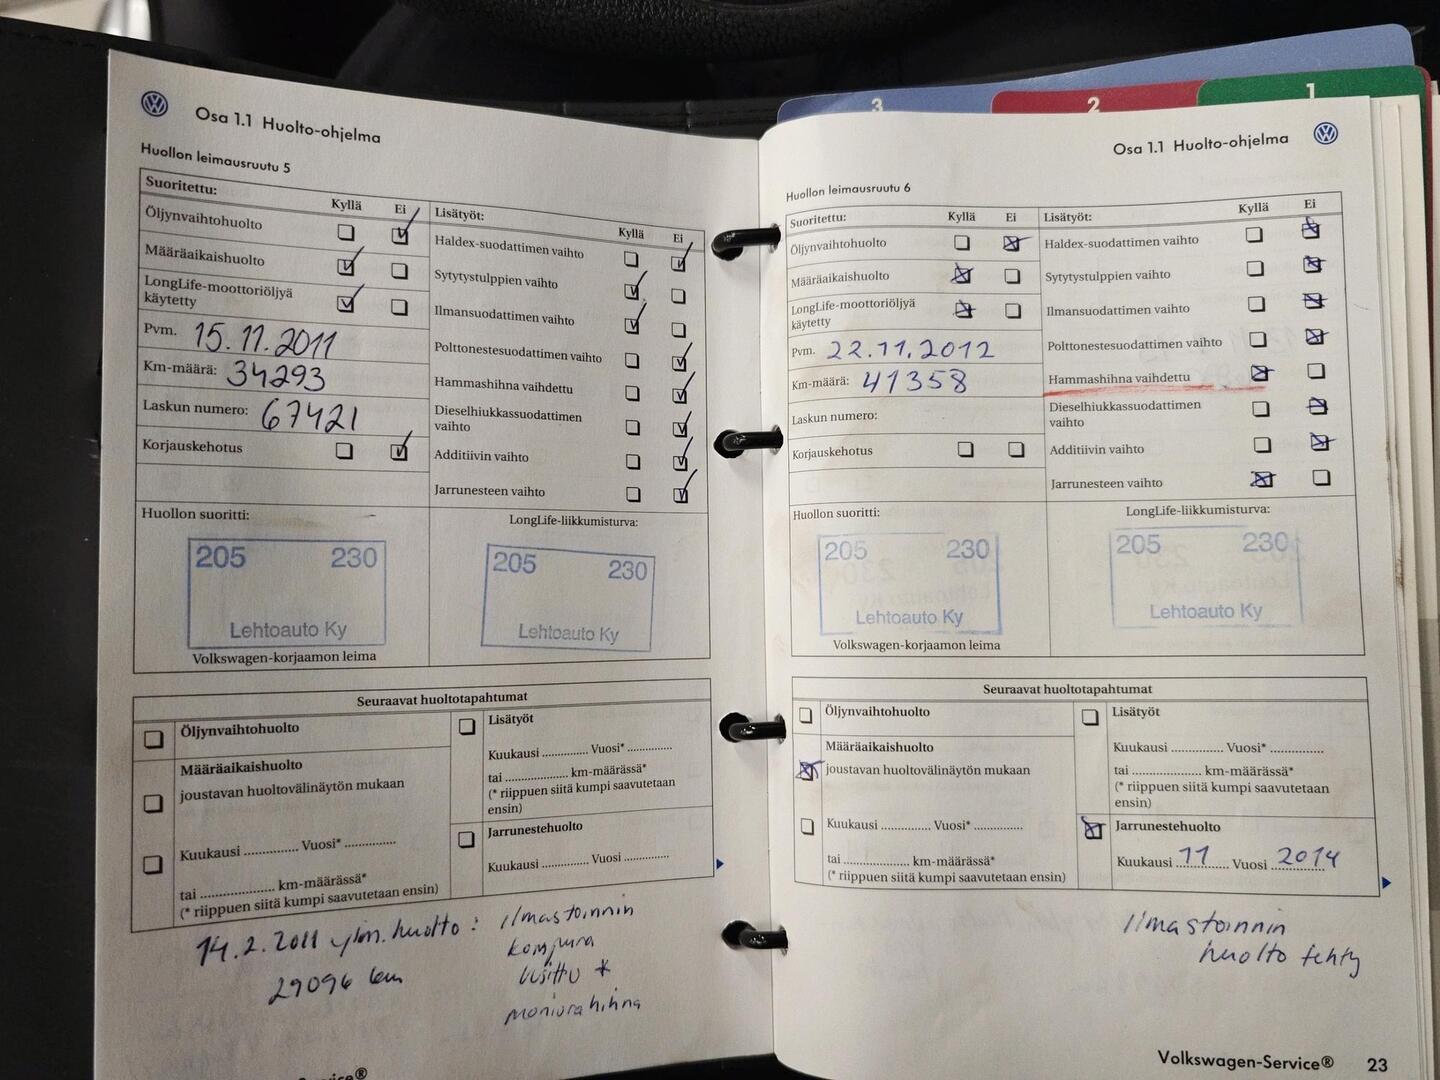 3
2
1
Osa 1.1 Huolto-ohjelma
Huollon leimausruutu 5
Suoritettu: Kyllä Ei
Öljynvaihtohuolto
Määräaikaishuolto
LongLife-moottoriöljyä
käytetty
Pvm. 15.11.2011
Km-määrä: 34293
Laskun numero: 67421
Korjauskehotus
Lisätyöt: Kyllä Ei
Haldex-suodattimen vaihto
Sytytystulppien vaihto
Ilmansuodattimen vaihto
Polttonestesuodattimen vaihto
Hammashihna vaihdettu
Dieselhiukkassuodattimen
vaihto
Additiivin vaihto
Jarrunesteen vaihto
Huollon suoritti:
205 230
Lehtoauto Ky
Volkswagen-korjaamon leima
LongLife-liikkumisturva:
205 230
Lehtoauto Ky
Seuraavat huoltotapahtumat
Öljynvaihtohuolto
Määräaikaishuolto
joustavan huoltovälinäytön mukaan
Kuukausi .............. Vuosi* ..............
tai .................... km-määrässä*
(* riippuen siitä kumpi saavutetaan ensin)
Lisätyöt
Kuukausi ............. Vuosi* .............
tai .................. km-määrässä*
(* riippuen siitä kumpi saavutetaan
ensin)
Jarrunestehuolto
Kuukausi ............. Vuosi .............
14.2.2011 ylim. huolto : Ilmastoinnin
29096 km kompura
uusittu *
moniurahihna
Osa 1.1 Huolto-ohjelma
Huollon leimausruutu 6
Suoritettu: Kyllä Ei
Öljynvaihtohuolto
Määräaikaishuolto
LongLife-moottoriöljyä
käytetty
Pvm. 22.11.2012
Km-määrä: 41358
Laskun numero:
Korjauskehotus
Lisätyöt: Kyllä Ei
Haldex-suodattimen vaihto
Sytytystulppien vaihto
Ilmansuodattimen vaihto
Polttonestesuodattimen vaihto
Hammashihna vaihdettu
Dieselhiukkassuodattimen
vaihto
Additiivin vaihto
Jarrunesteen vaihto
Huollon suoritti:
205 230
Lehtoauto Ky
Volkswagen-korjaamon leima
LongLife-liikkumisturva:
205 230
Lehtoauto Ky
Seuraavat huoltotapahtumat
Öljynvaihtohuolto
Määräaikaishuolto
joustavan huoltovälinäytön mukaan
Kuukausi ............. Vuosi* .............
tai .................. km-määrässä*
(* riippuen siitä kumpi saavutetaan ensin)
Lisätyöt
Kuukausi .............. Vuosi* ..............
tai .................. km-määrässä*
(* riippuen siitä kumpi saavutetaan
ensin)
Jarrunestehuolto
Kuukausi 11 Vuosi 2014
Ilmastoinnin
huolto tehty
Volkswagen-Service® 23